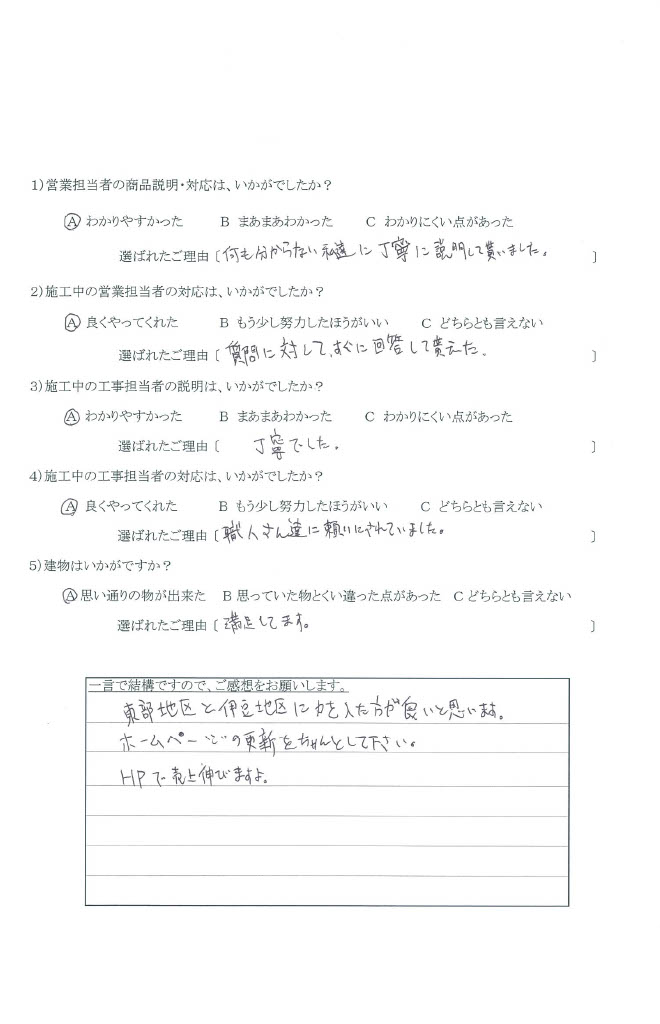 1)営業担当者の商品説明・対応は、いかがでしたか？
Ⓐ わかりやすかった　B まあまあわかった　C わかりにくい点があった
選ばれたご理由〔何も分からない私達に丁寧に説明して貰いました。〕
2)施工中の営業担当者の対応は、いかがでしたか？
Ⓐ 良くやってくれた　B もう少し努力したほうがいい　C どちらとも言えない
選ばれたご理由〔質問に対して、すぐに回答して貰えた。〕
3)施工中の工事担当者の説明は、いかがでしたか？
Ⓐ わかりやすかった　B まあまあわかった　C わかりにくい点があった
選ばれたご理由〔丁寧でした。〕
4)施工中の工事担当者の対応は、いかがでしたか？
Ⓐ 良くやってくれた　B もう少し努力したほうがいい　C どちらとも言えない
選ばれたご理由〔職人さん達に頼りにされていました。〕
5)建物はいかがですか？
Ⓐ思い通りの物が出来た　B 思っていた物とくい違った点があった　C どちらとも言えない
選ばれたご理由〔満足してます。〕
一言で結構ですので、ご感想をお願いします。
東部地区と伊豆地区に力を入た方が良いと思います。
ホームページの更新をちゃんとして下さい。
HPで売上伸びますよ。